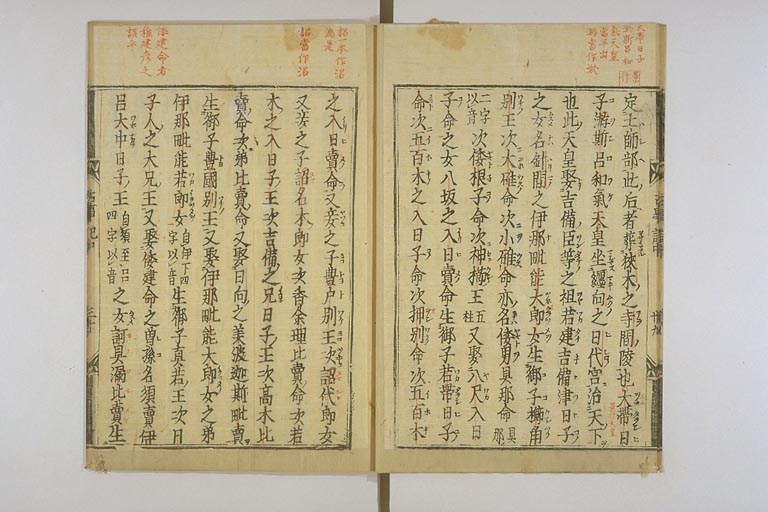 定玉師部此后者葬狹木之寺間陵也大帶日
子游斯呂和氣天皇坐纏向之日代宮治天下
也此天皇娶吉備臣等之祖若建吉備津日子
之女名針間之伊那毗能大郎女生御子櫛角
別王次大碓命次小碓命亦名倭男具那命具那
二字以音次倭根子命次神櫛王五柱又娶八尺入日
子命之女八坂之入日賣命生御子若帶日子
命次五百木之入日子命次押別命次五百木
之入日賣命又妾之子豊戸別王次詔代郎女
又妾之子詔名木郎女次香余理比賣命次若
木之入日子王次吉備之兄日子王次高木比
賣命次弟比賣命又娶日向之美波迦斯毗賣
生御子豊國別王又娶伊那毗能大郎女之弟
伊那毗能若郎女自伊下四字以音生御子真若王次日
子人之大兄王又娶倭建命之曾孫名須賣伊
呂大中日子王自須至呂四字以音之女訶具漏比賣生
詔一本作沼
為是
詔當作沼
倭建命者
誤乎